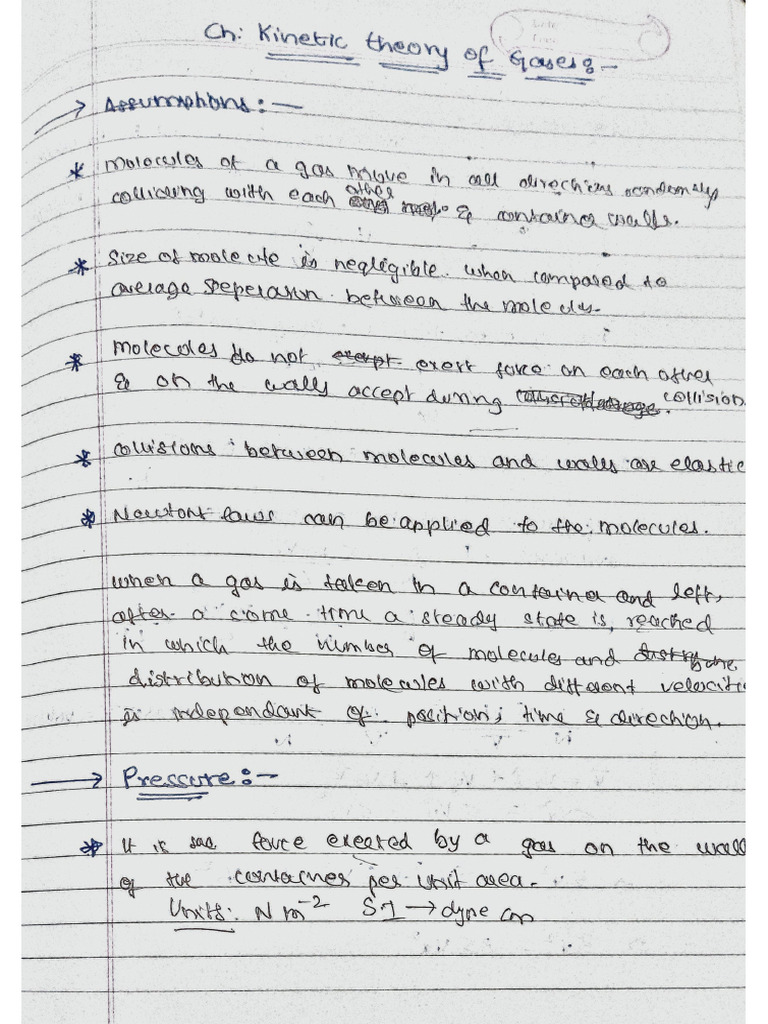 Ch: Kinetic theory of Gases:-
→ Assumptions:-
* Molecules of a gas move in all directions randomly
colliding with each other & container walls.
* Size of molecule is negligible when compared to
average seperation between the molecules.
* Molecules do not exert force on each other
& on the walls accept during collision
* collisions between molecules and walls are elastic
* Newtons laws can be applied to the molecules.
when a gas is taken in a container and left,
after a time a steady state is, reached
in which the number of molecules and
distribution of molecules with different velocitie
is independant of position, time & direction.
→ Pressure:-
* It is force exerted by a gas on the wall
of the container per unit area.
Units: N m⁻² SI → dyne cm